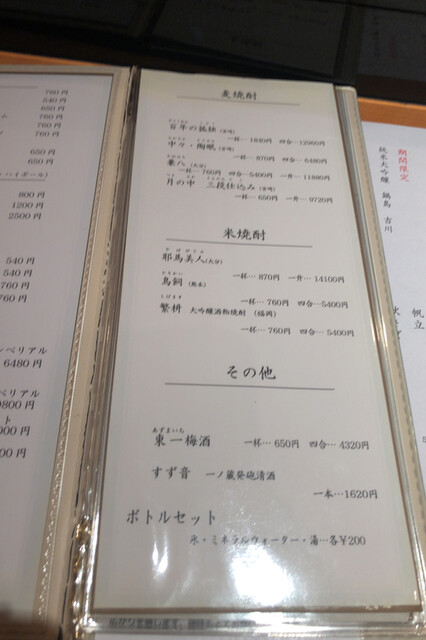 760円
540円
650円
760円
760円
650円
650円
ハイボール)
800円
1200円
2500円
540円
540円
760円
760円
ペリアル
6480円
ペリアル
9800円
ト
000円
000円
麦焼酎
百年の孤独(宮崎)
一杯…1840円 四合…12960円
中々・陶眠(宮崎)
一杯…870円 四合…6480円
兼八(大分)
一杯…760円 四合…5400円 一升…11880円
月の中 三段仕込み(宮崎)
一杯…650円 一升…9720円
米焼酎
やばびじん
耶馬美人(大分)
一杯…870円 一升…14100円
とりかい
鳥飼(熊本)
一杯…760円 四合…5400円
しげます
繁桝 大吟醸酒粕焼酎 (福岡)
一杯…760円 四合…5400円
その他
あずまいち
東一梅酒 一杯…650円 四合…4320円
すず音 一ノ蔵発砲清酒
一本…1620円
ボトルセット
氷・ミネラルウォーター・湯…各¥200
期間限定
純米大吟醸 鍋島 吉川
帆立